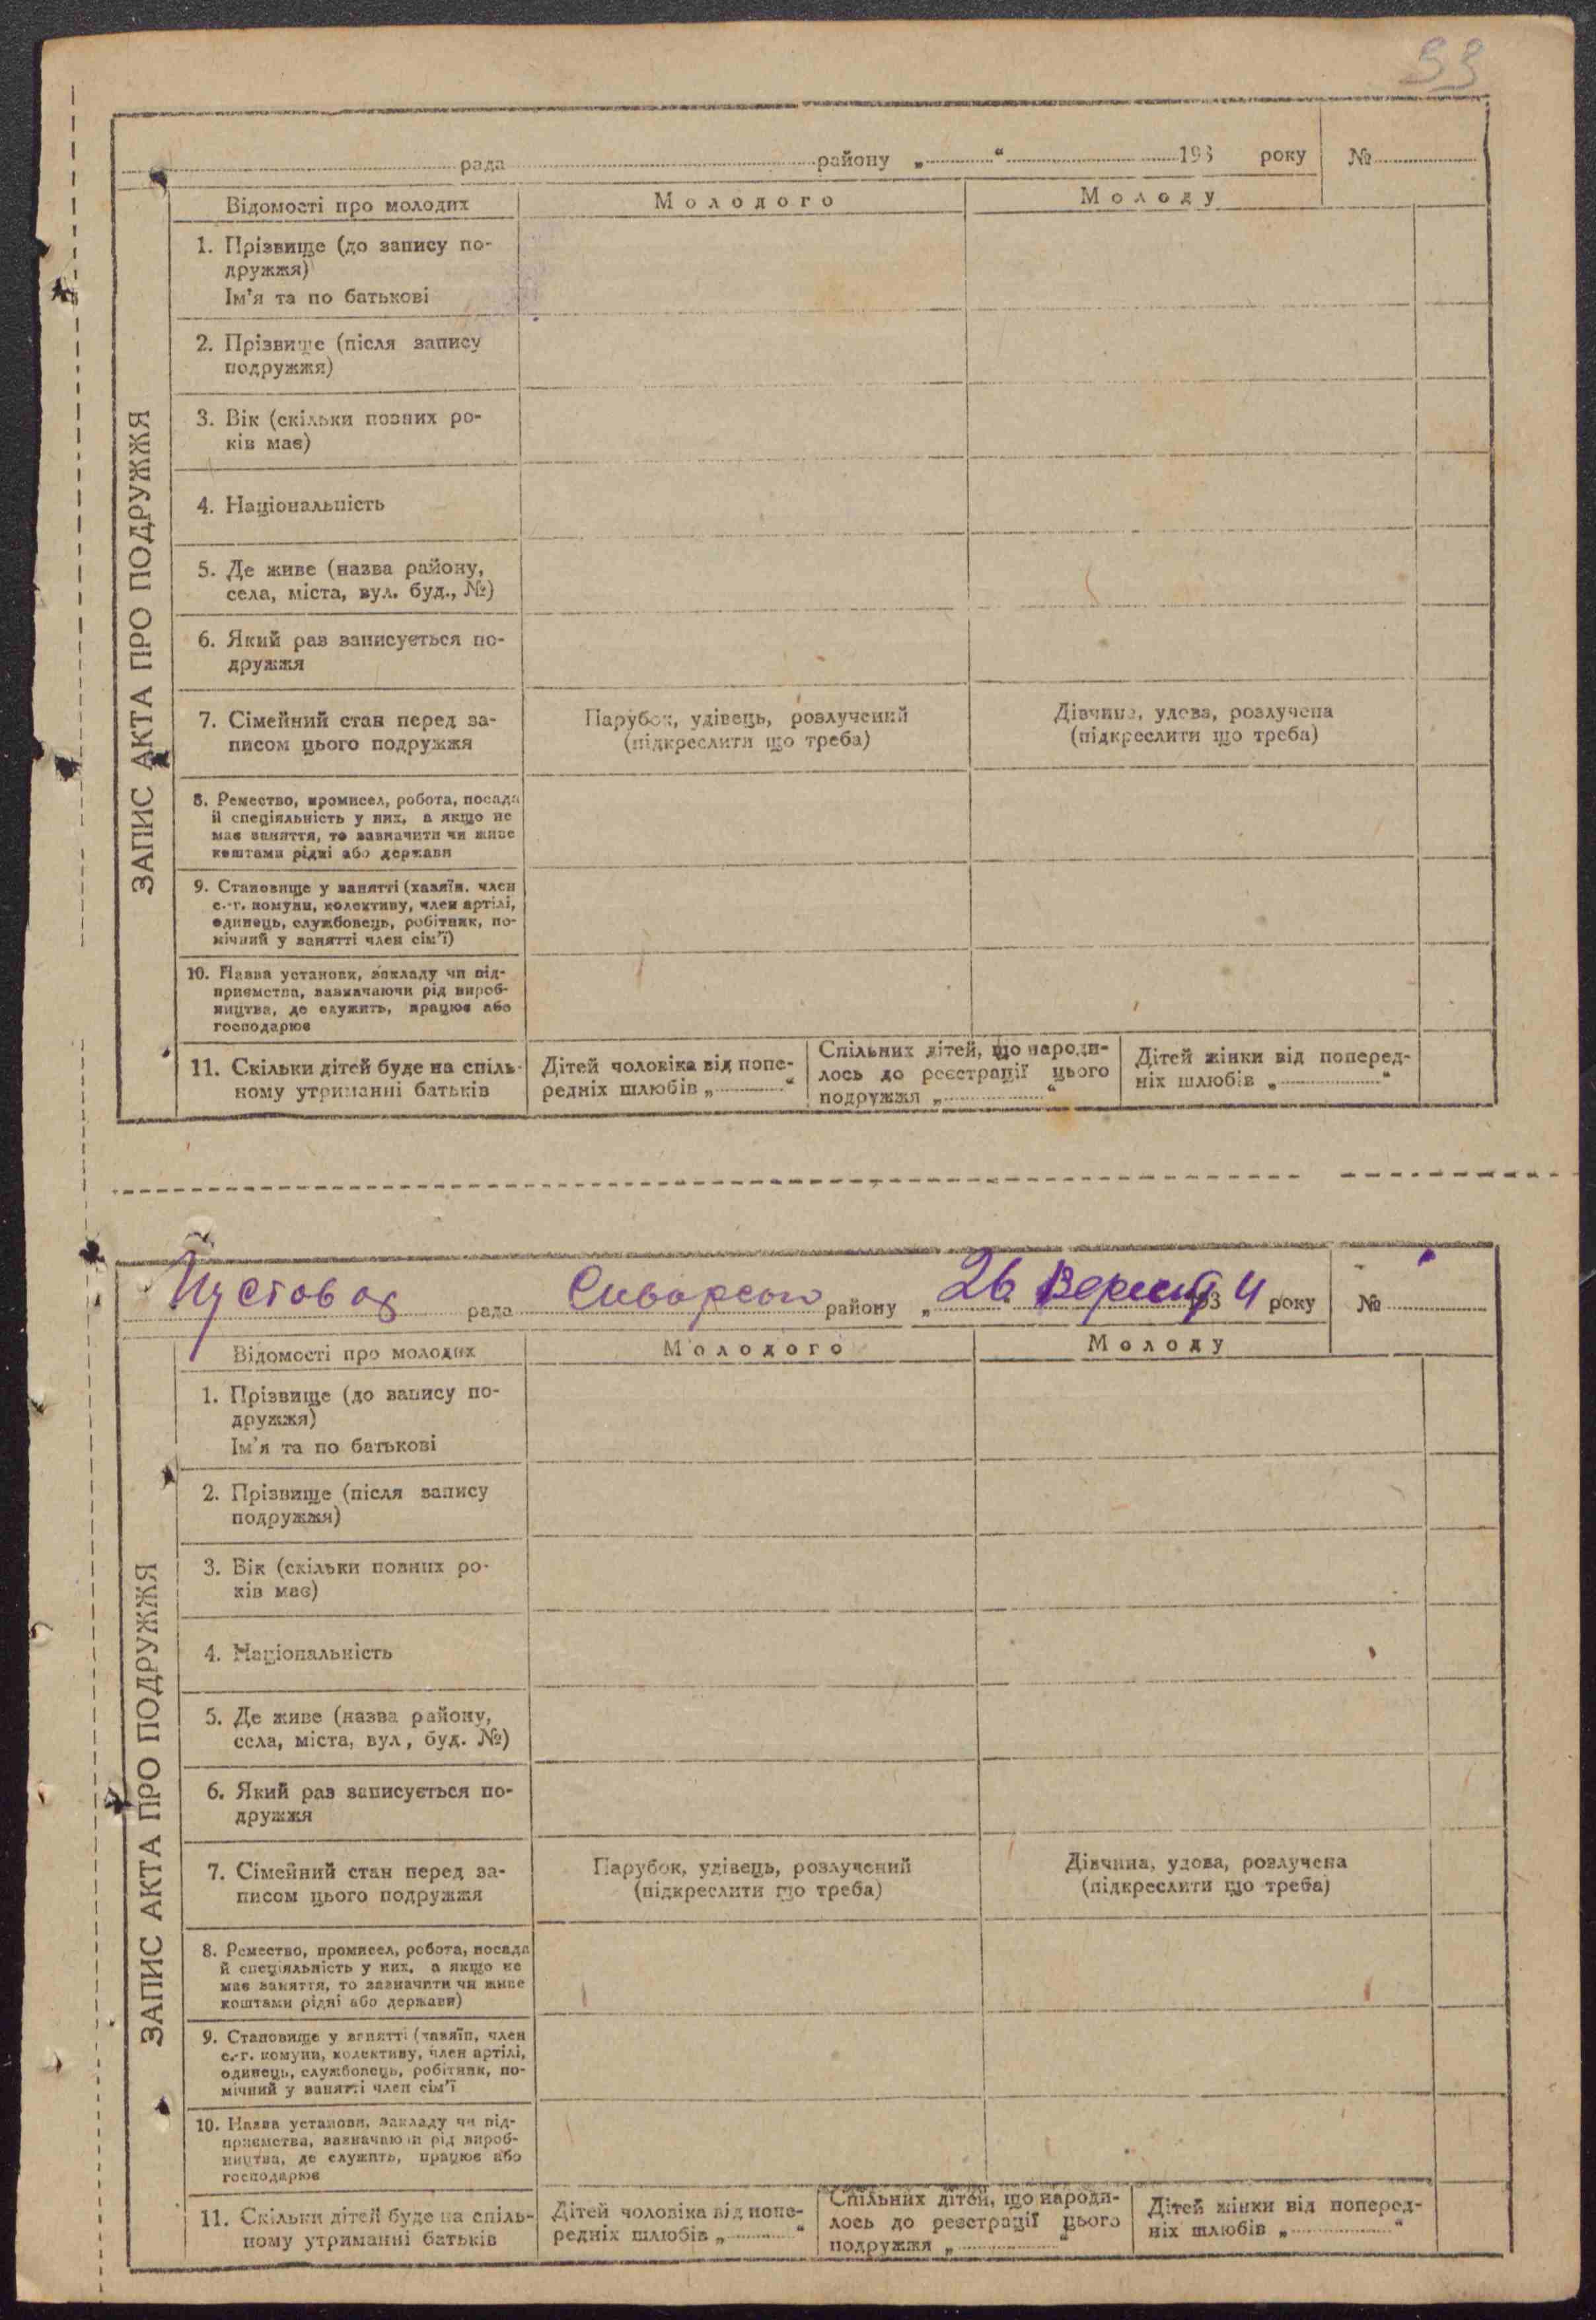 33
рада району „ “ 193 року №
ЗАПИС АКТА ПРО ПОДРУЖЖЯ
Відомості про молодих Молодого Молоду
1. Прізвище (до запису по-
дружжя)
Ім’я та по батькові
2. Прізвище (після запису
подружжя)
3. Вік (скільки повних ро-
ків має)
4. Національність
5. Де живе (назва району,
села, міста, вул. буд., №)
6. Який раз записується по-
дружжя
7. Сімейний стан перед за-
писом цього подружжя
Парубок, удівець, розлучений
(підкреслити що треба)
Дівчина, удова, розлучена
(підкреслити що треба)
8. Ремество, промисел, робота, посада
й спеціяльність у них, а якщо не
має заняття, то зазначити чи живе
коштами рідні або держави
9. Становище у занятті (хазяїн, член
с.-г. комуни, колективу, член артілі,
одинець, службовець, робітник, по-
мічний у занятті член сім’ї)
10. Назва установи, закладу чи під-
приємства, зазначаючи рід вироб-
ництва, де служить, працює або
господарює
11. Скільки дітей буде на спіль-
ному утриманні батьків
Дітей чоловіка від попе-
редніх шлюбів „ “
Спільних дітей, що народи-
лось до реєстрації цього
подружжя „ “
Дітей жінки від поперед-
ніх шлюбів „ “
рада району „ 26 193 4 року №
ЗАПИС АКТА ПРО ПОДРУЖЖЯ
Відомості про молодих Молодого Молоду
1. Прізвище (до запису по-
дружжя)
Ім’я та по батькові
2. Прізвище (після запису
подружжя)
3. Вік (скільки повних ро-
ків має)
4. Національність
5. Де живе (назва району,
села, міста, вул, буд. №)
6. Який раз записується по-
дружжя
7. Сімейний стан перед за-
писом цього подружжя
Парубок, удівець, розлучений
(підкреслити що треба)
Дівчина, удова, розлучена
(підкреслити що треба)
8. Ремество, промисел, робота, посада
й спеціяльність у них, а якщо не
має заняття, то зазначити чи живе
коштами рідні або держави)
9. Становище у занятті (хазяїн, член
с.-г. комуни, колективу, член артілі,
одинець, службовець, робітник, по-
мічний у занятті член сім’ї
10. Назва установи, закладу чи під-
приємства, зазначаючи рід вироб-
ництва, де служить, працює або
господарює
11. Скільки дітей буде на спіль-
ному утриманні батьків
Дітей чоловіка від попе-
редніх шлюбів „ “
Спільних дітей, що народи-
лось до реєстрації цього
подружжя „ “
Дітей жінки від поперед-
ніх шлюбів „ “